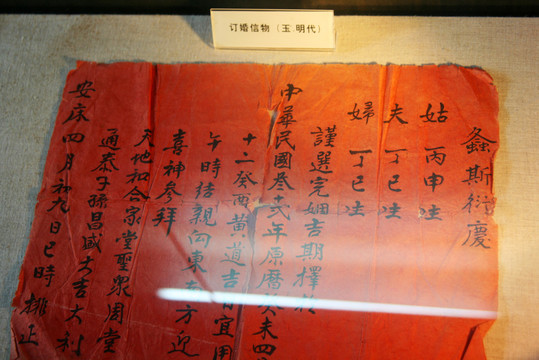 订婚信物（玉 明代）
螽斯衍慶
姑 丙申生
夫 丁巳生
婦 丁巳生
謹選完姻吉期擇於
中華民國叁十弍年原曆癸未四
十二癸酉黄道吉日宜用
午時结親向東南方迎
喜神參拜
天地和合家堂聖衆周堂
通泰子孫昌盛大吉大利
安床四月初九日巳時 排正